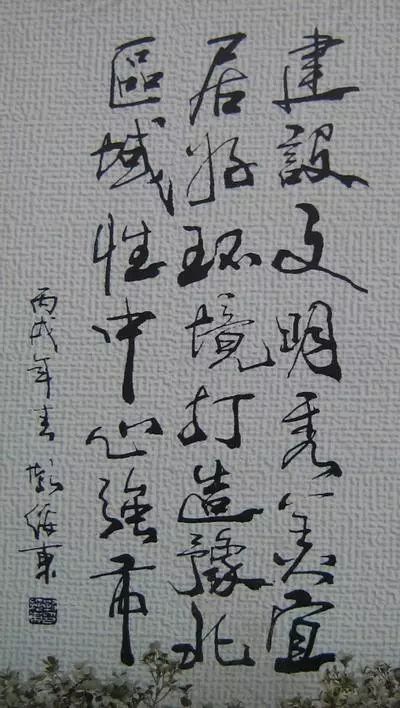 建設文明秀美宜
居好环境打造豫北
區域性中心強市
丙戌年春